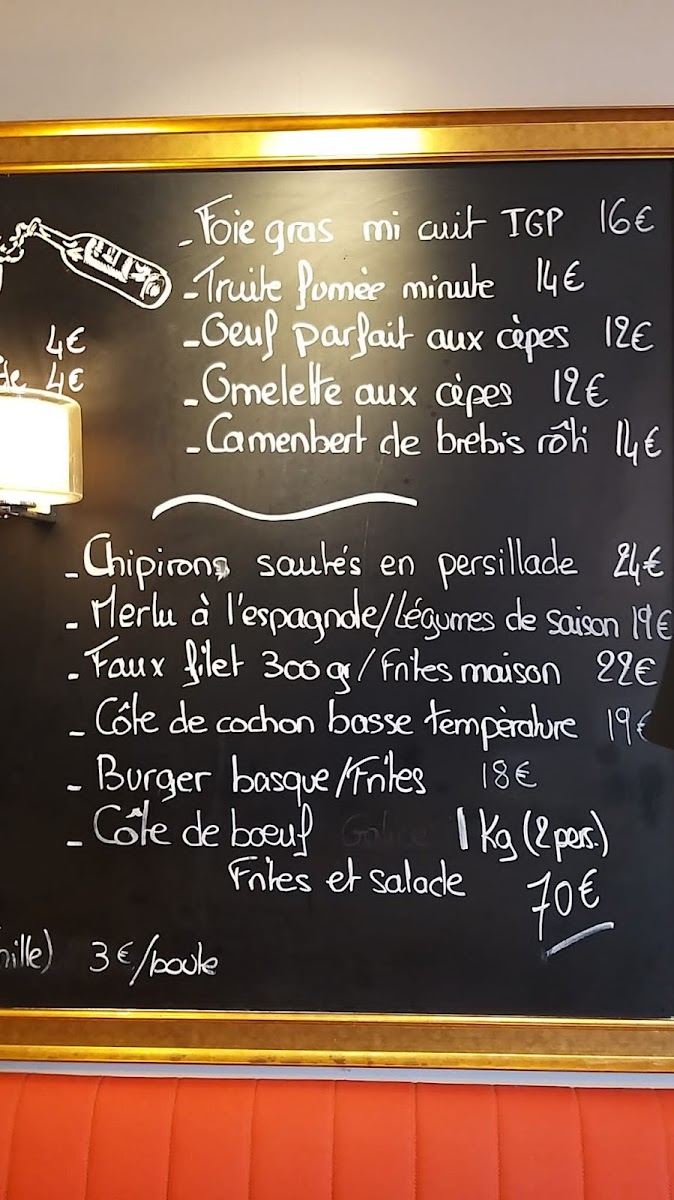 - Foie gras mi cuit IGP 16€
- Truite fumée minute 14€
4€
- Oeuf parfait aux cèpes 12€
de 4€
- Omelette aux cèpes 12€
- Camenbert de brebis rôti 14€
- Chipirons sautés en persillade 24€
- Merlu à l'espagnole/Légumes de saison 19€
- Faux filet 300gr/Frites maison 22€
- Côte de cochon basse tempèrature 19€
- Burger basque/Frites 18€
- Côte de boeuf Galice 1Kg (2pers.)
Frites et salade 70€
nille) 3€/boule